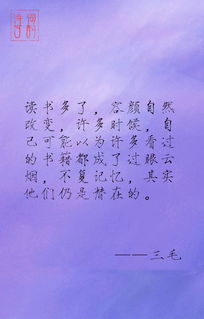 读书多了，容颜自然
改变，许多时候，自
己可能以为许多看过
的书籍都成了过眼云
烟，不复记忆，其实
他们仍是潜在的。
——三毛